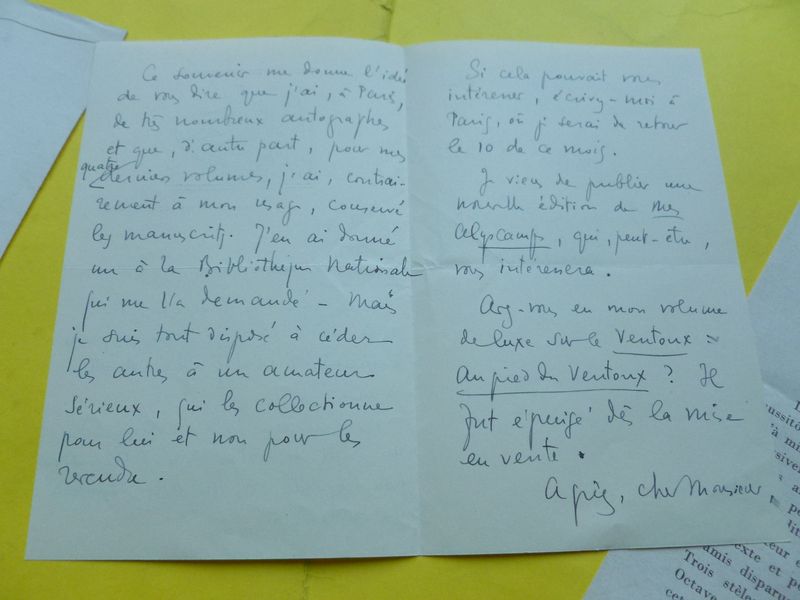 Ce souvenir me donne l'idée
de vous dire que j'ai, à Paris,
de très nombreux autographes
et que, d'autre part, pour mes
quatre
derniers volumes, j'ai, contrai-
rement à mon usage, conservé
les manuscrits. J'en ai donné
un à la Bibliothèque Nationale
qui me l'a demandé – Mais
je suis tout disposé à céder
les autres à un amateur
sérieux, qui les collectionne
pour lui et non pour les
revendre.
Si cela pouvait vous
intéresser, écrivez-moi à
Paris, où je serai de retour
le 10 de ce mois.
Je viens de publier une
nouvelle édition de mes
Alyscamps, qui, peut-être,
vous intéressera.
Avez-vous eu mon volume
de luxe sur le Ventoux :
Au pied du Ventoux ? Il
fut épuisé dès la mise
en vente.
Agréez, cher Monsieur,
ussitô
à mi
siver
a
pe
dit
eur e
exte et p
amis disparu
Trois stèle
Octave
cet